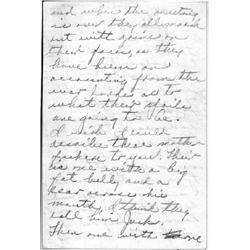 and when the meeting
is over they all
out with grins on
their faces, as they
have been an
accounting from the
war lords as to
what their spoils
are going to be.
I wish I could
describe these mother
to you. There
is one with a big
fat belly and a
scar across his
mouth, I think they
call him Jack.
Then one with one